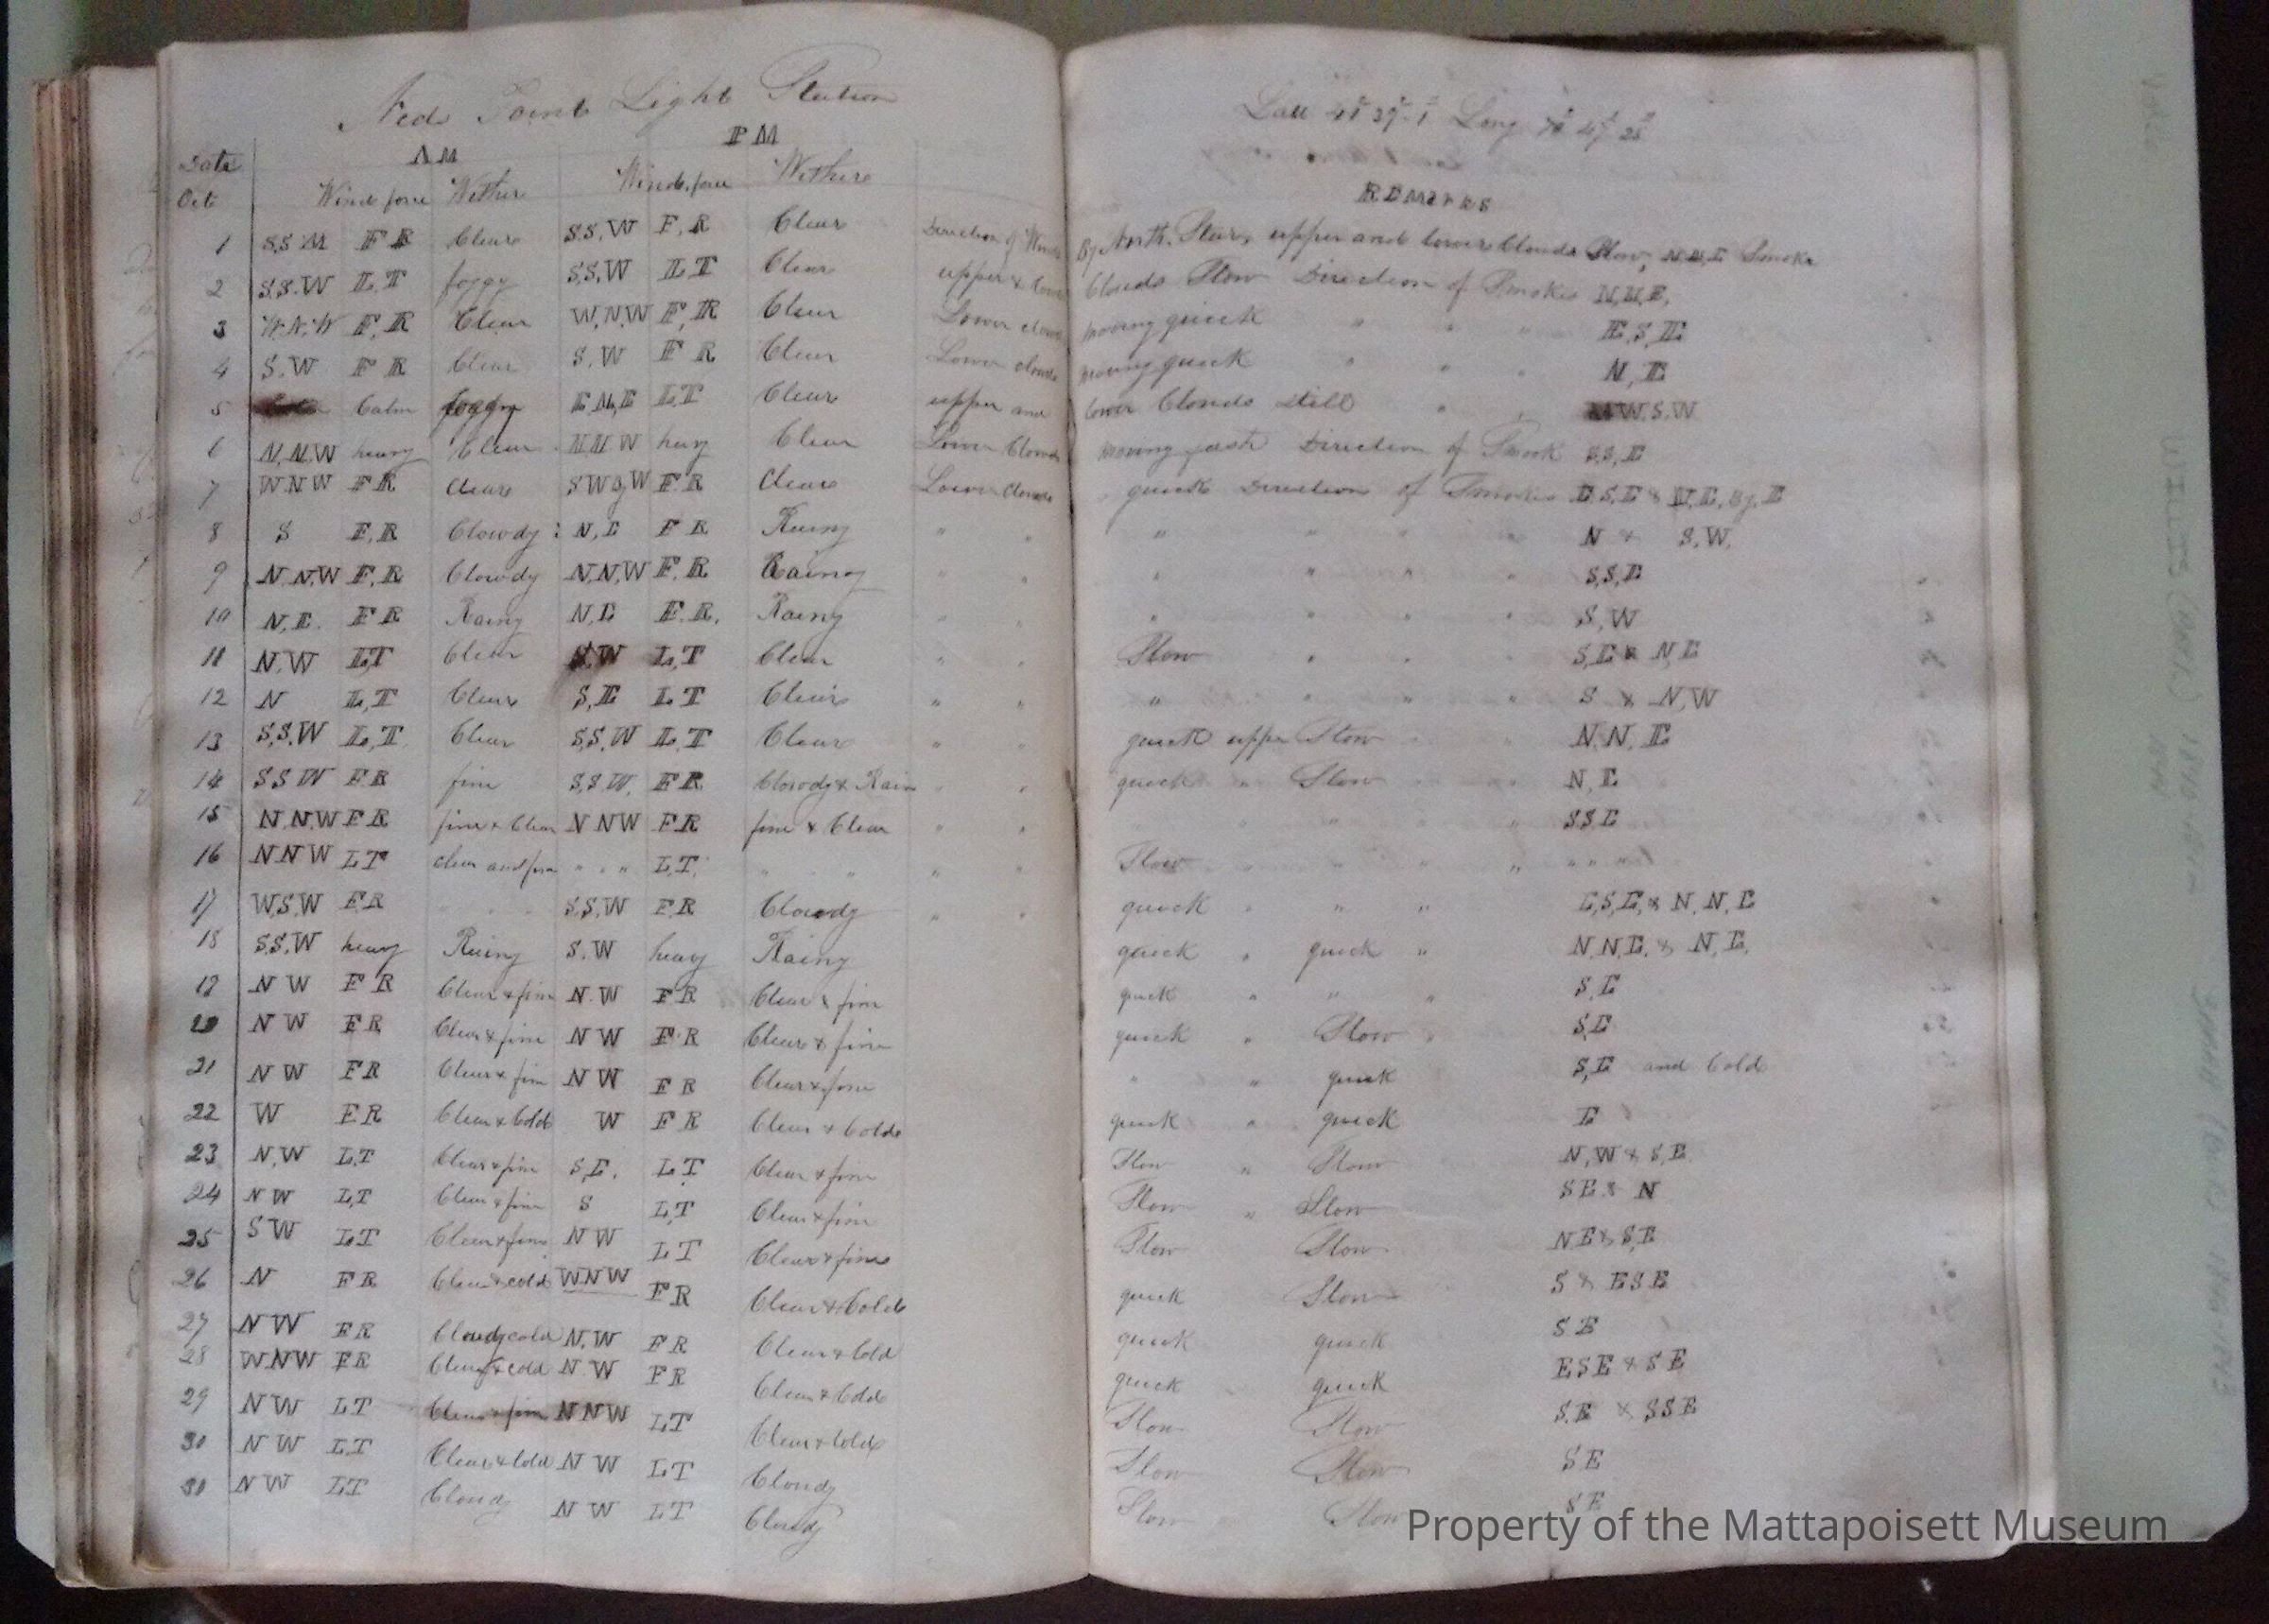 Neds Point Light Station
Latt 41° 39' 1" Long 70° 47' 25"
AM PM
Date Wind force Wether Winds force Wethere REMarks
Oct
1 S,S,W F R Cleare S.S,W F,R Cleare Direction of Winds By North Stars, upper and lowers Clouds Slow, N,N,E Smoke
2 S,S,W L,T foggy S,S,W L T Clear upper & lower Clouds Slow Direction of Smokes N,N,E,
3 W.N.W F,R Clear W,N,W F,R Clear Lower clouds moving quick " " " E,S,E
4 S.W F R Clear S.W F R Clear Lower clouds moving quick " " " N,E
5 Calm foggy E N,E L T Cleare upper and lower Clouds still " " W.S.W
6 N,N,W heavy Clear N N W hevy Clear Lower Clouds moving fast Direction of Smook S,S,E
7 W N W F R Cleare S W By W F.R Cleare Lower Clouds quick Direction of Smokes E,S,E & N,E, By, E
8 S F,R Clowdy N,E F R Rainy " " " " " " N & S,W.
9 N.N,W F,R Clowdy N,N,W F,R Rainy " " " " " " S,S,E
10 N,E. F R Rainy N,E F.R, Rainy " " " " " " S,W
11 N,W L,T Clear S,W L,T Clear " " Slow " " " S,E & N,E
12 N L,T Cleare S,E L T Cleare " " " " " " S & N,W
13 S,S,W L,T Clear S,S,W L,T Cleare " " quick upper Slow " N.N,E
14 S S W F R fine S,S W, F R Clowdy & Rain " " quick " Slow " " N,E
15 N.N.W F R fine & Clear N N W F R fine & Clear " " " " " " S S E
16 N N W L T clear and fine " " " L,T. " " " " Slow " " " " " " "
17 W,S,W F R " " " S,S,W F,R Clowdy " " quick " " " E,S,E, & N,N,E
18 S,S,W heavy Rainy S.W heavy Rainy quick " quick " N,N,E, & N,E,
19 N W F R Clear & fine N.W F R Clear & fine quick " " " S,E
20 N W F R Clear & fine N W F R Cleare & fine quick " Slow " S,E
21 N W F R Clear & fine N W F R Clear & fine " " quick S,E and Cold
22 W F R Clear & Cold W F R Clear & Colde quick " quick E
23 N,W L,T Clear & fine S,E. L T Clear & fine Slow " Slow N,W & S,E
24 N W L,T Clear & fine S L,T Clear & fine Slow " Slow S E & N
25 S W L T Clear & fine N W L T Clear & fine Slow Slow N E & S,E
26 N F R Clear & cold W N W F R Clear & Cold quick Slow S & E S E
27 N W F R Cloudy cold N,W F R Clear & Cold quick quick S E
28 W N W F R Clear & cold N W F R Clear & Cold quick quick E S E & S E
29 N W L T Clear & fine N N W L T Clear & Cold Slow Slow S,E & S S E
30 N W L T Clear & Cold N W L T Cloudy Slow Slow S E
30 N W L T Cloudy N W L T Cloudy Slow Slow S E
Property of the Mattapoisett Museum